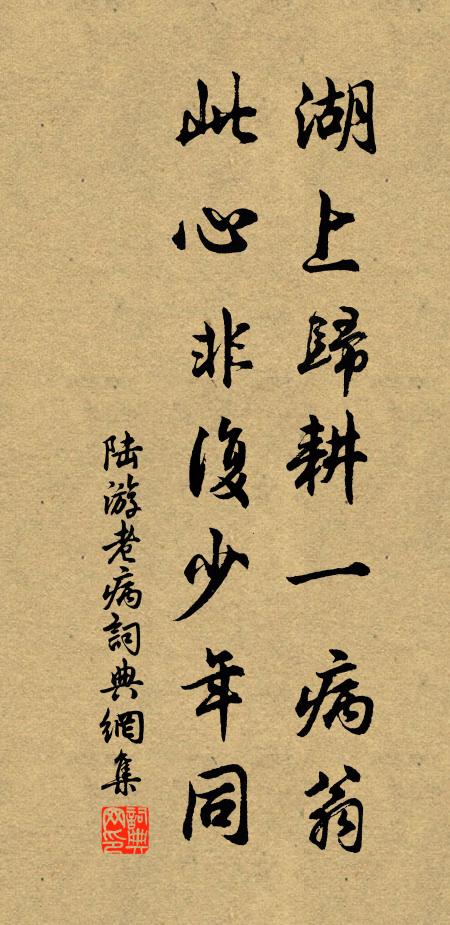 湖上歸耕一病翁
此心非復少年同
陸游老病詞典網集
詞典網印